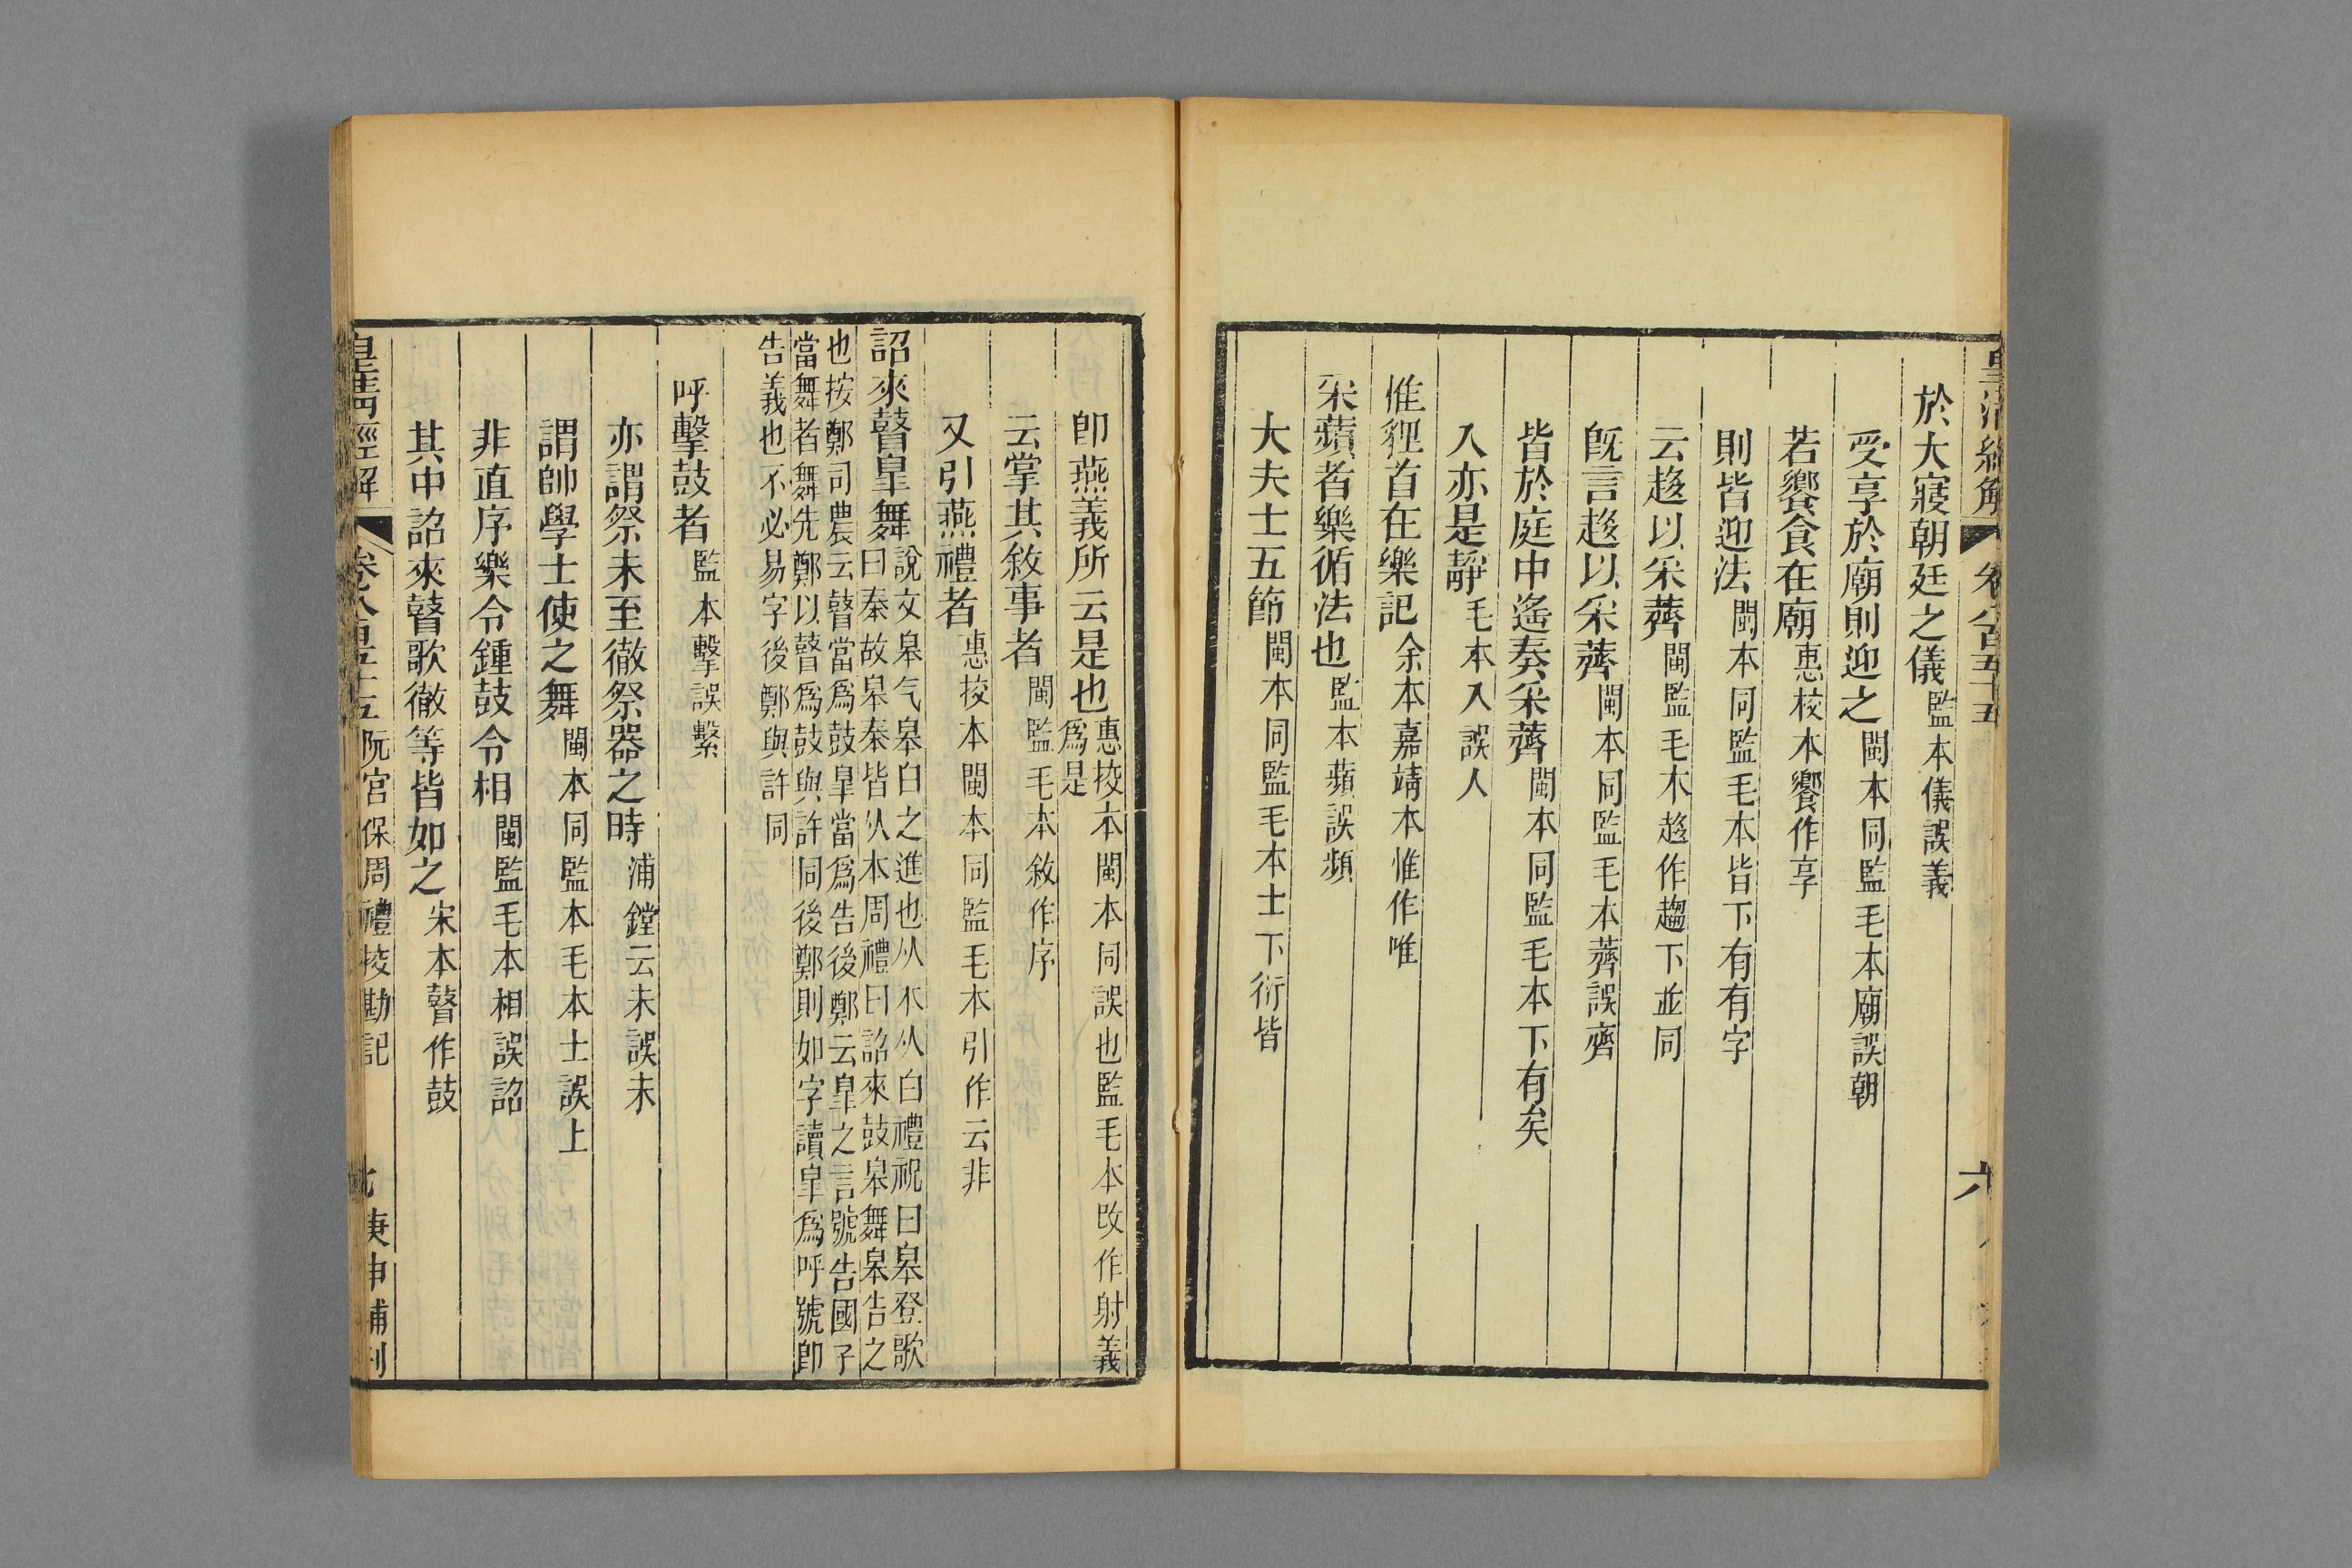 皇清經解 卷八百五十五 六
於大寢朝廷之儀監本儀誤義
受享於廟則迎之閩本同監毛本廟誤朝
若饗食在廟惠校本饗作享
則皆迎法閩本同監毛本皆下有有字
云趍以采薺閩監毛本趍作趨下並同
旣言趍以采薺閩本同監毛本薺誤齊
皆於庭中遙奏采薺閩本同監毛本下有矣
入亦是靜毛本入誤人
惟貍首在樂記余本嘉靖本惟作唯
采蘋者樂循法也監本蘋誤頻
大夫士五節閩本同監毛本士下衍皆
卽燕義所云是也惠挍本閩本同誤也監毛本改作射義
爲是
云掌其敘事者閩監毛本敘作序
又引燕禮者惠挍本閩本同監毛本引作云非
詔來瞽臯舞說文皋气皋白之進也从夲从白禮祝曰皋登歌
曰奏故皋奏皆从夲周禮曰詔來鼓皋舞皋告之
也按鄭司農云瞽當爲鼓臯當爲告後鄭云臯之言號告國子
當舞者舞先鄭以瞽爲鼓與許同後鄭則如字讀臯爲呼號卽
告義也不必易字後鄭與許同
呼擊鼓者監本擊誤繫
亦謂祭末至徹祭器之時浦鏜云末誤未
謂帥學士使之舞閩本同監本毛本士誤上
非直序樂令鍾鼓令相閩監毛本相誤詔
其中詔來瞽歌徹等皆如之宋本瞽作鼓
皇清經解 卷八百五十五 阮宮保周禮挍勘記 七 庚申補刊